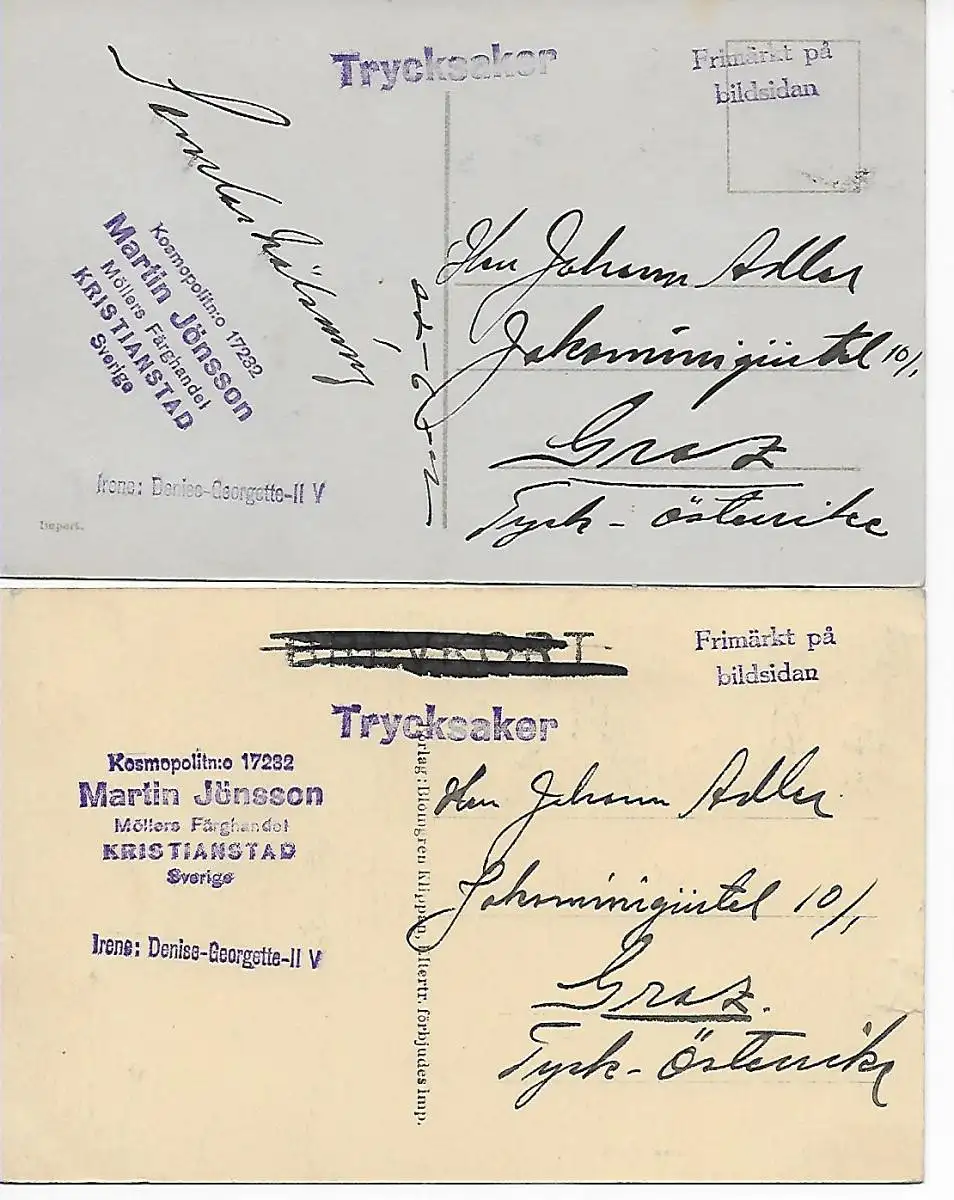 Trycksaker
Frimärkt på
bildsidan
Samlarhälsning
Kosmopolitn:o 17232
Martin Jönsson
Möllers Färghandel
KRISTIANSTAD
Sverige
Irene: Denise-Georgette-II V
Import.
Herr Johann Adler
Jakominigürtel 10/1
Graz
Tysk-Österrike
BREVKORT
Frimärkt på
bildsidan
Trycksaker
Kosmopolitn:o 17232
Martin Jönsson
Möllers Färghandel
KRISTIANSTAD
Sverige
Irene: Denise-Georgette-II V
Förlag: Blomgren Klippan, Eftertr. förbjudes Imp.
Herr Johann Adler
Jakominigürtel 10/1
Graz.
Tysk-Österrike